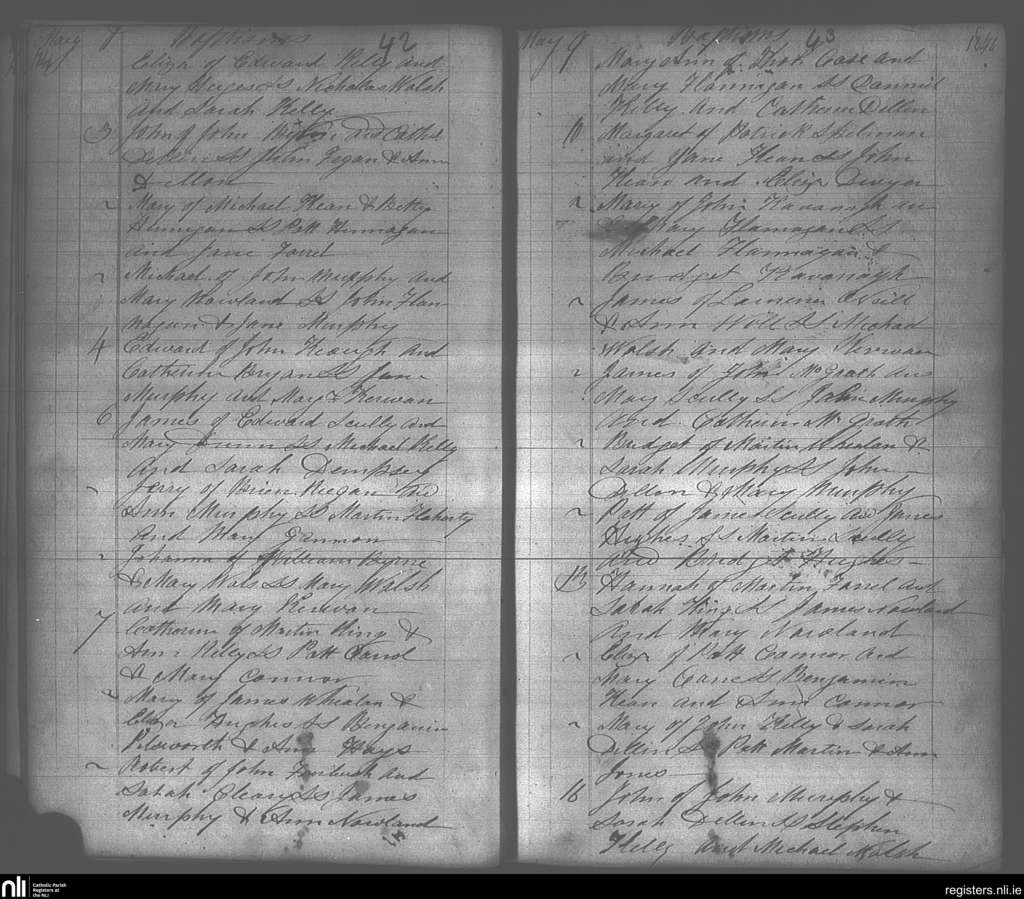 May Baptisms 42
Eliza of Edward Kelly and
Mary Ss Nicholas Walsh
and Sarah Kelly
3 John of John and Cathe
Dellon Ss John Fegan & Ann
Dellon
Mary of Michael Kean & Betty
Hinnegan Ss Patt Hinnagan
and Jane Farrel
Michael of John Murphy and
Mary Nowland Ss John Flan
nagan & Jane Murphy
4 Edward of John Keough and
Catherine Bryan Ss Jane
Murphy and Mary Kerwan
6 James of Edward Scully and
Mary Dunn Ss Michael Kelly
and Sarah Dempsey
Jerry of Brien Keegan and
Ann Murphy Ss Martin Flaharty
and Mary Gannon
Johanna of William Byrne
& Mary Wals Ss Mary Walsh
and Mary Kerwan
7 Catherine of Martin King &
Ann Kelly Ss Patt Carrol
& Mary Connor
Mary of James Whealan &
Eliza Hughes Ss Benjamin
Pilsworth & Ann Hays
Robert of John and
Sarah Cleary Ss James
Murphy & Ann Nowland
May 9 Baptisms 43
Mary Ann of Thos Case and
Mary Flannigan Ss Danniel
Kelly and Catherin Dellon
10 Margaret of Patrick
and Jane Kean Ss John
Kean and Eliza Dwyer
Mary of John Kavanagh an
Mary Flannagan Ss
Michael Flannagan &
Bridget Kavanagh
James of
& Ann Ss Michael
Walsh and Mary Kerwan
James of John McGrath and
Mary Scully Ss John Murphy
and Catherin McGrath
Bridget of Martin Whealan &
Sarah Murphy Ss John
Dellon & Mary Murphy
Patt of James Scully and Jane
Hughes Ss Martin Scully
and Hughes
13 Hannah of Martin Farrel and
Sarah King Ss James Nowland
and Mary Nowland
Eliza of Patt Connor and
Mary Ss Benjamin
Kean and Ann Connor
Mary of John Kelly & Sarah
Dellon Ss Patt Martin & Ann
Jones
16 John of John Murphy &
Sarah Dellon Ss Stephen
Kelly and Michael Walsh
nli Catholic Parish
Registers at
the NLI
registers.nli.ie